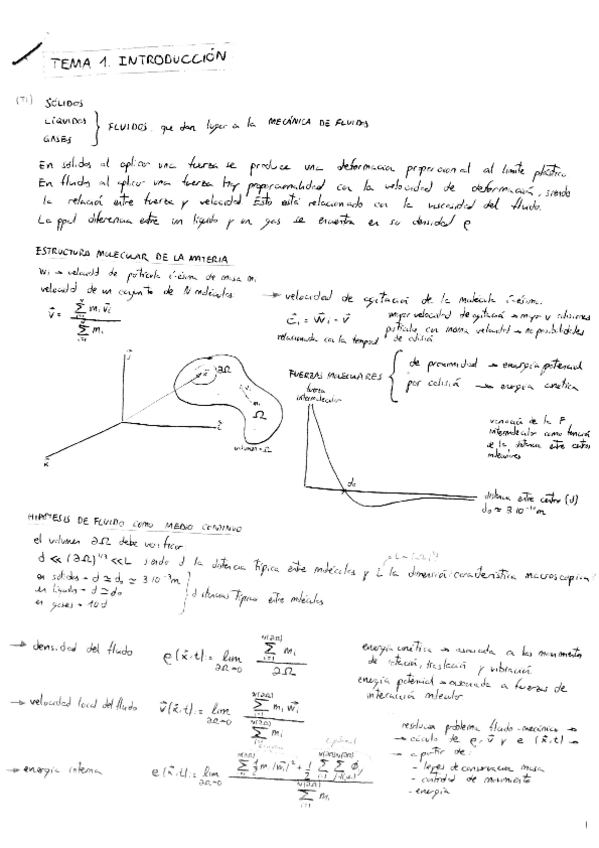 TEMA 1. INTRODUCCIÓN
(T1) SÓLIDOS
LÍQUIDOS
GASES
FLUIDOS que dan lugar a la MECÁNICA DE FLUIDOS
En sólidos al aplicar una fuerza se produce una deformación proporcional al límite plástico.
En fluidos al aplicar una fuerza hay proporcionalidad con la velocidad de deformación, siendo
la relación entre fuerza y velocidad Esto está relacionado con la viscosidad del fluido.
La ppal diferencia entre un líquido y un gas se encuentra en su densidad ρ
ESTRUCTURA MOLECULAR DE LA MATERIA
wi → velocidad de partícula i-ésima de masa mi
velocidad de un conjunto de N moléculas
→ velocidad de agitación de la molécula i-ésima.
mayor velocidad de agitación → mayor colisiones
partículas con misma velocidad → no posibilidades
de colisión
relacionada con la temp
FUERZAS MOLECULARES
de proximidad → energía potencial
por colisión → energía cinética
fuerza
intermolecular
variación de la F
intermolecular como función
de la distancia entre centros
moleculares
∂Ω
Ω
volumen = Ω
do
distancia entre centros (d)
do ≈ 3·10⁻¹⁰ m
HIPÓTESIS DE FLUIDO COMO MEDIO CONTINUO
el volumen ∂Ω debe verificar:
d << (∂Ω)^1/3 << L siendo d la distancia típica entre moléculas y L la dimensión característica macroscópica
en sólidos = d ≅ do ≅ 3·10⁻¹⁰ m
en líquidos = d ≅ do
en gases = 10 d
distancias típicas entre moléculas
→ densidad del fluido
ρ(x̄,t) = lim ∂Ω→0
energía cinética → asociada a los movimientos
de rotación, traslación y vibración
energía potencial → asociada a fuerzas de
interacción molecular.
→ velocidad local del fluido
v̄(x̄,t) = lim ∂Ω→0
resolver problema fluido-mecánico →
→ cálculo de ρ, v̄ y e (x̄,t) →
→ a partir de:
- leyes de conservación masa
- cantidad de movimiento
- energía
→ energía interna
e(x̄,t) = lim ∂Ω→0
1